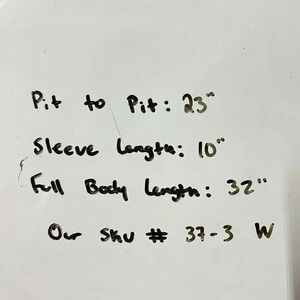 Pit to Pit: 23"
Sleeve Length: 10"
Full Body Length: 32"
Our Sku # 37-3 W